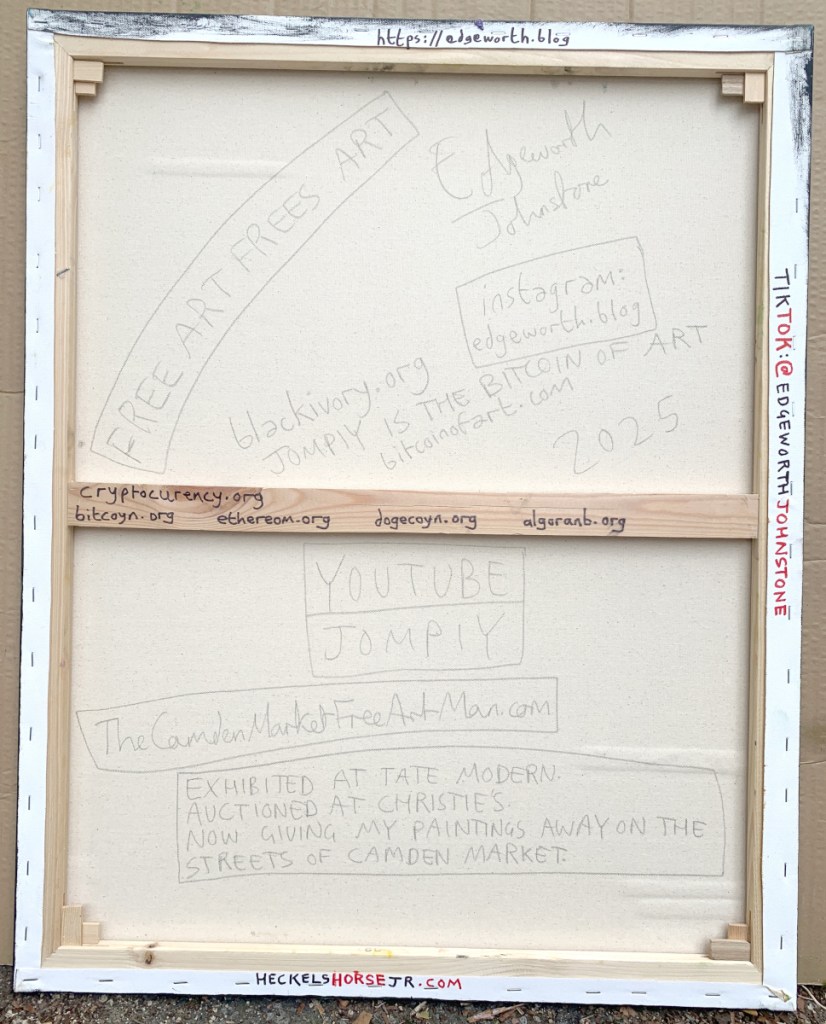 https://edgeworth.blog
FREE ART FREES ART
Edgeworth
Johnstone
instagram:
edgeworth.blog
blackivory.org
JOMPIY IS THE BITCOIN OF ART
bitcoinofart.com
2025
TIKTOK:@EDGEWORTHJOHNSTONE
cryptocurency.org
bitcoyn.org ethereom.org dogecoyn.org algoranb.org
YOUTUBE
JOMPIY
TheCamdenMarketFreeArtMan.com
EXHIBITED AT TATE MODERN.
AUCTIONED AT CHRISTIE'S.
NOW GIVING MY PAINTINGS AWAY ON THE
STREETS OF CAMDEN MARKET.
HECKELSHORSEJR.COM